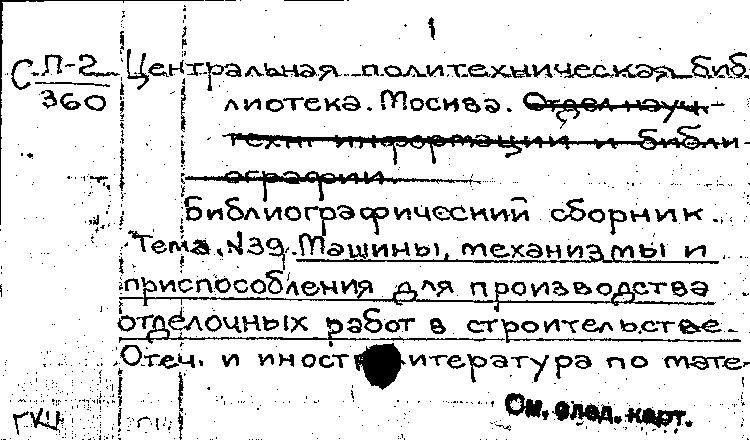 1
С П-2 Центральная политехническая биб
360 лиотека. Москва. Отдел науч.-
техн информации и библи-
ографии.
Библиографический сборник.
Тема. №39. Машины, механизмы и
приспособления для производства
отделочных работ в строительстве.
Отеч. и иностр литература по мате-
См. след. карт.
ГКЧ